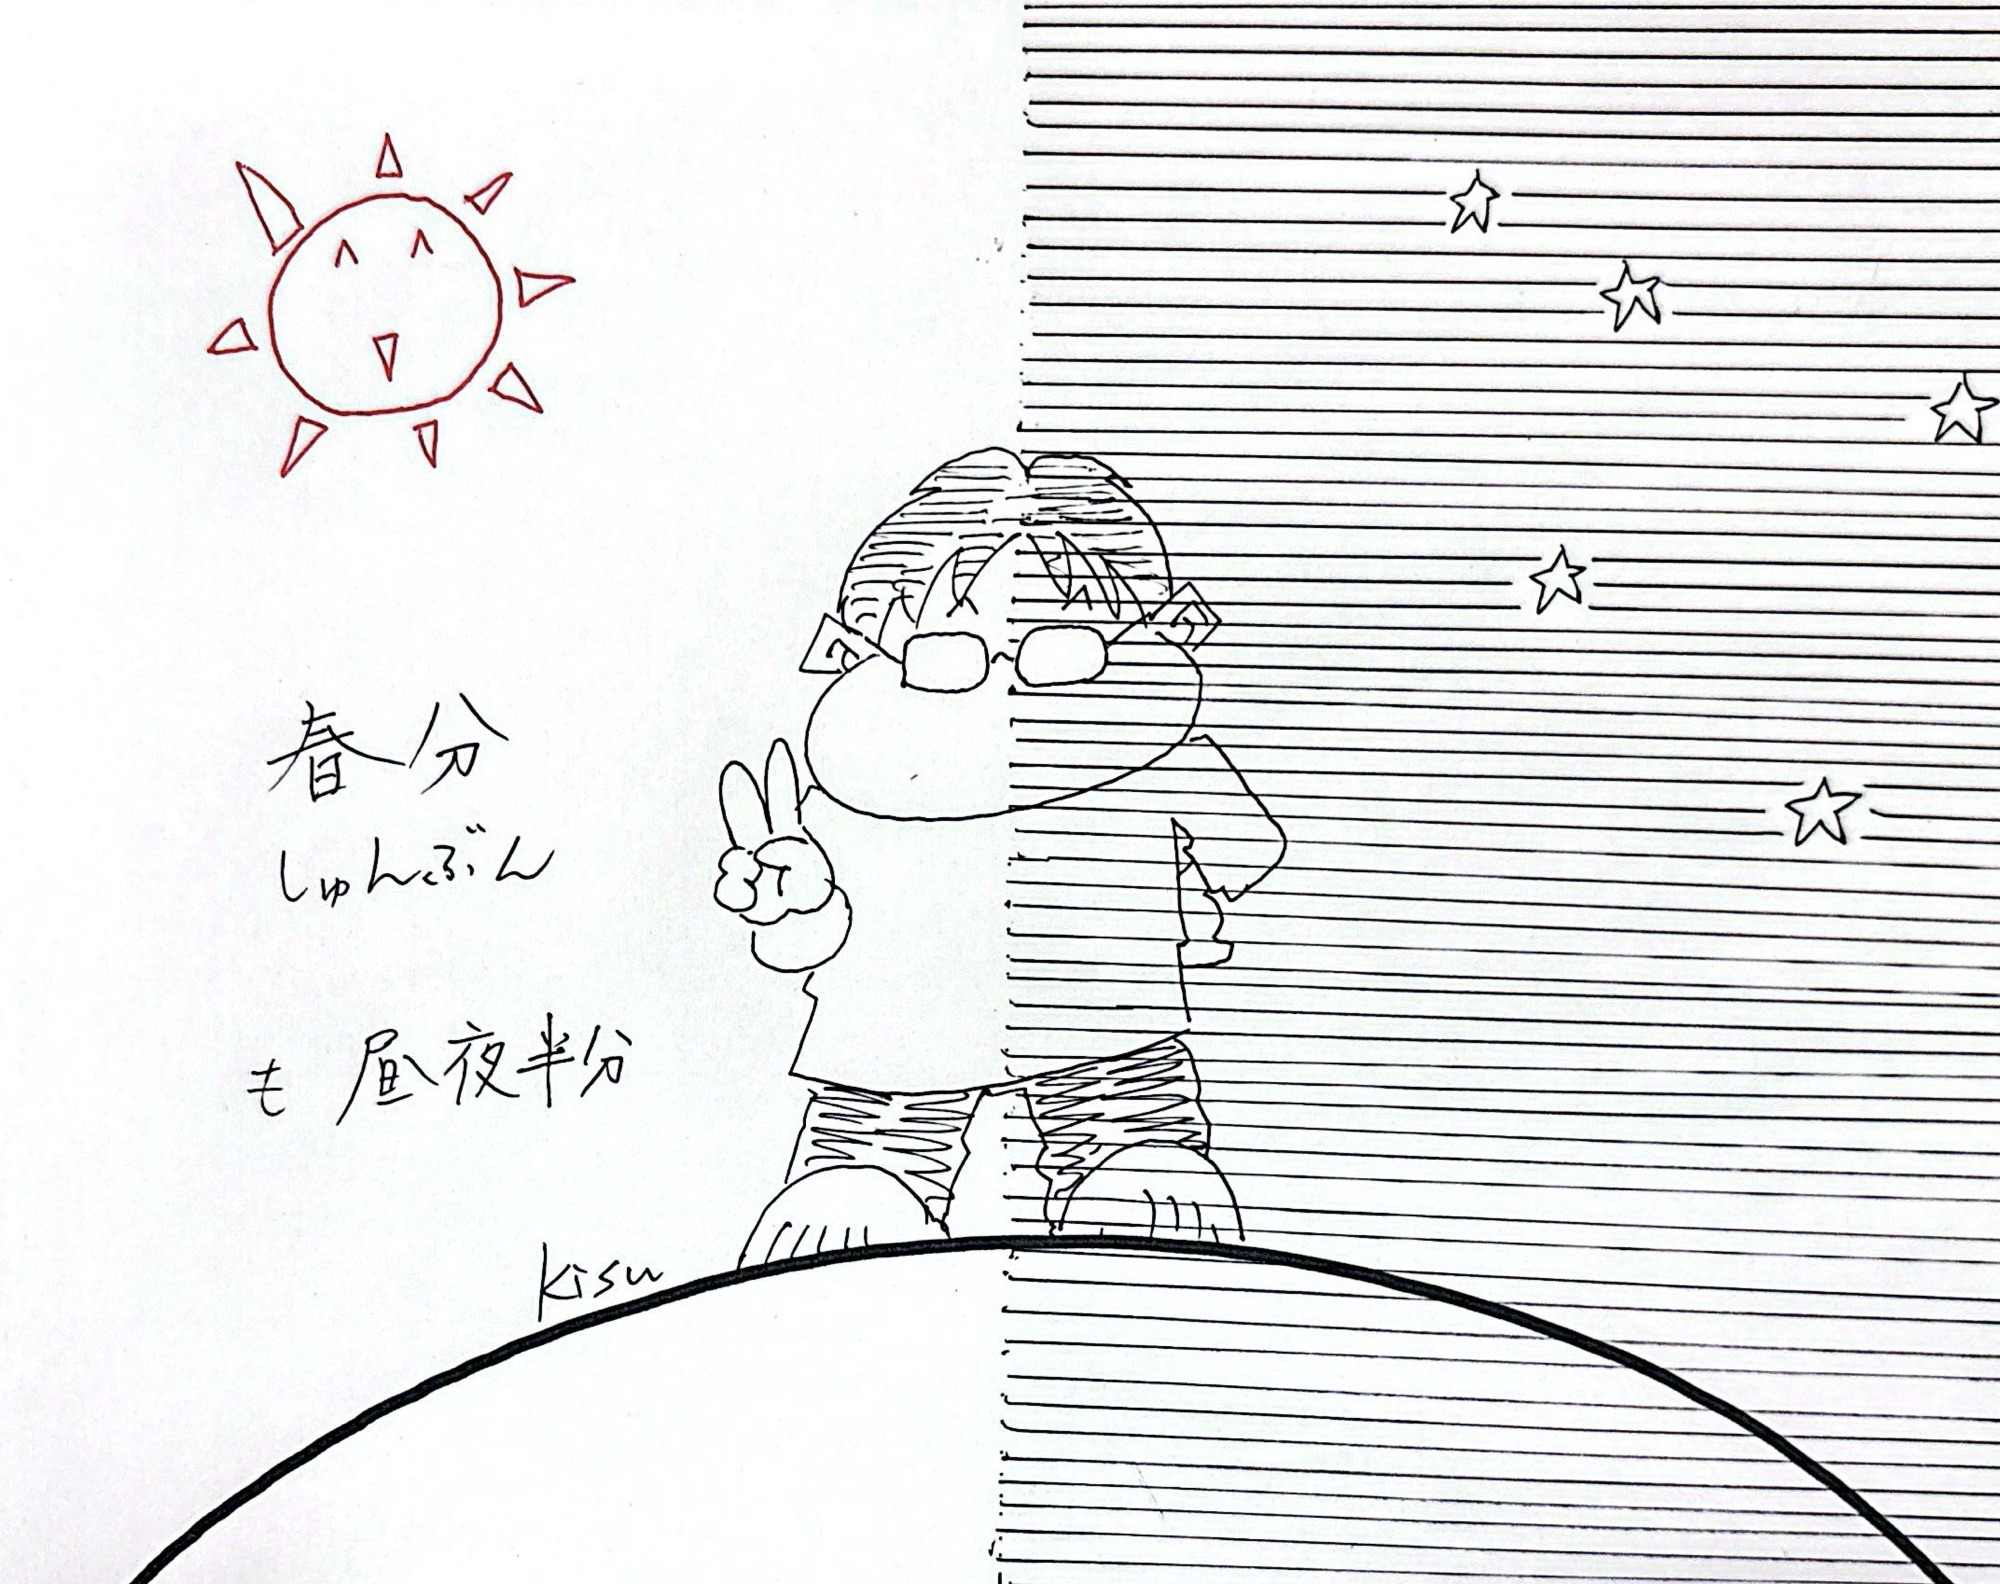 春分
しゅんぶん
も 昼夜半分
kisu